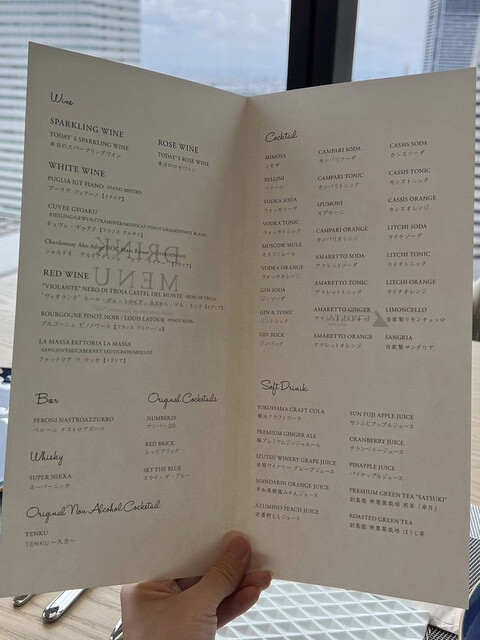 Wine
SPARKLING WINE
TODAY'S SPARKLING WINE
本日のスパークリングワイン
ROSE WINE
TODAY'S ROSE WINE
本日のロゼワイン
WHITE WINE
PUGLIA IGT FIANO
プーリア フィアーノ【イタリア】
CUVEE GYOAKU
Chardonnay Alto Adige DOC
シャルドネ
RED WINE
"VIOLANTE" NERO DI TROIA CASTEL DEL MONTE -NERO DI TROIA
BOURGOGNE PINOT NOIR / LOUIS LATOUR -PINOT NOIR
ブルゴーニュ ピノノワール【フランス ブルゴーニュ】
LA MASSA FATTORIA LA MASSA
-SANGIOVESE/CABERNET SAUVIGNON/MERLOT
ファットリア ラ マッサ【イタリア】
DRINK
MENU
Beer
PERONI NASTROAZZURRO
ペローニ ナストロアズーロ
Original Cocktails
NUMBER20
ナンバー20
RED BRICK
レッドブリック
SKY THE BLUE
スカイ・ザ・ブルー
Whisky
SUPER NIKKA
スーパーニッカ
Original Non-Alcohol Cocktail
TENKU
TENKU 〜天空〜
Cocktail
MIMOSA
ミモザ
BELLINI
ベリーニ
VODKA SODA
ウォッカソーダ
VODKA TONIC
ウォッカトニック
MOSCOW MULE
モスコミュール
VODKA ORANGE
ウォッカオレンジ
GIN SODA
ジンソーダ
GIN & TONIC
ジントニック
GIN BUCK
ジンバック
CAMPARI SODA
カンパリソーダ
CAMPARI TONIC
カンパリトニック
SPUMONI
スプモーニ
CAMPARI ORANGE
カンパリオレンジ
AMARETTO SODA
アマレットソーダ
AMARETTO TONIC
アマレットトニック
AMARETTO GINGER
AMARETTO ORANGE
アマレットオレンジ
CASSIS SODA
カシスソーダ
CASSIS TONIC
カシストニック
CASSIS ORANGE
カシスオレンジ
LITCHI SODA
ライチソーダ
LITCHI TONIC
ライチトニック
LITCHI ORANGE
ライチオレンジ
LIMONCELLO
自家製リモンチェッロ
SANGRIA
自家製サングリア
Soft Drink
YOKOHAMA CRAFT COLA
横浜クラフトコーラ
PREMIUM GINGER ALE
極プレミアムジンジャエール
IZUTSU WINERY GRAPE JUICE
井筒ワイナリー グレープジュース
MANDARIN ORANGE JUICE
AZUMINO PEACH JUICE
安曇野ももジュース
SUN FUJI APPLE JUICE
サンふじアップルジュース
CRANBERRY JUICE
クランベリージュース
PINAPPLE JUICE
パイナップルジュース
PREMIUM GREEN TEA "SATSUKI"
ROASTED GREEN TEA